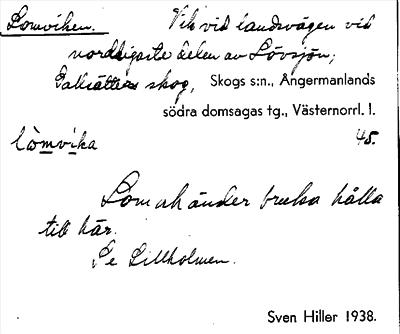 Lomviken. Vik vid landsvägen vid
nordligaste delen av Lövsjön;
skog, Skogs s:n., Ångermanlands
södra domsagas tg., Västernorrl. l.
lòmvika 45.
Lom och änder bruka hålla
till här.
Se Lillholmen.
Sven Hiller 1938.